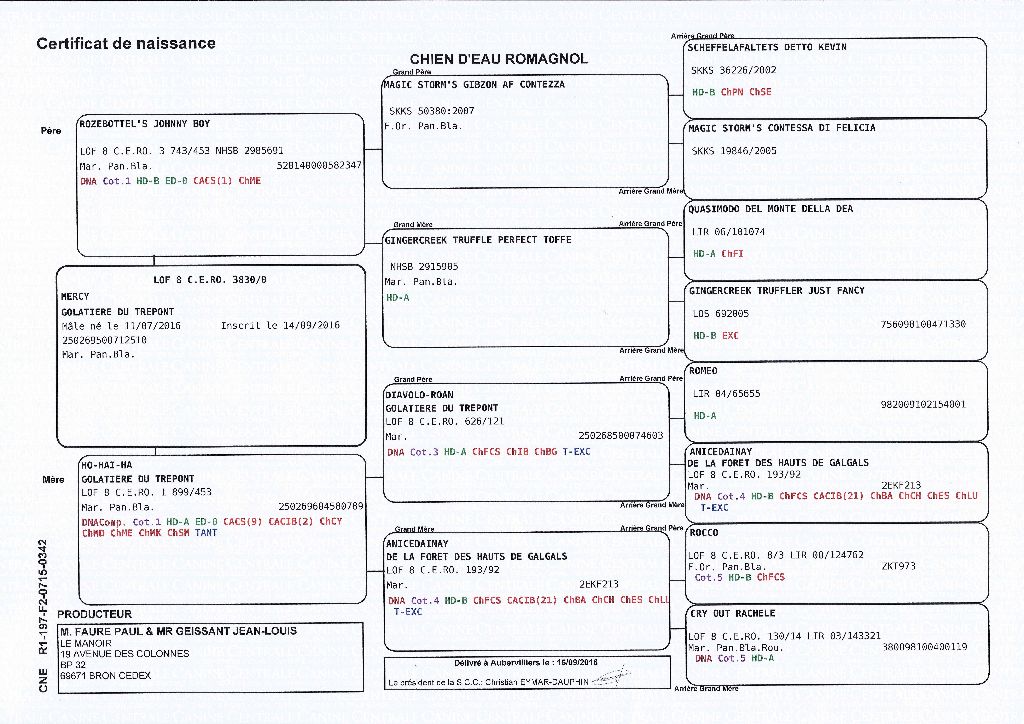 Certificat de naissance
CHIEN D'EAU ROMAGNOL
Père
ROZEBOTTEL'S JOHNNY BOY
LOF 8 C.E.RO. 3 743/453 NHSB 2985691
Mar. Pan.Bla. 528140000582347
DNA Cot.1 HD-B ED-0 CACS(1) ChME
LOF 8 C.E.RO. 3830/0
MERCY
GOLATIERE DU TREPONT
Mâle né le 11/07/2016 Inscrit le 14/09/2016
250269500712510
Mar. Pan.Bla.
Mère
HO-HAI-HA
GOLATIERE DU TREPONT
LOF 8 C.E.RO. 1 899/453
Mar. Pan.Bla. 250269604580789
DNAComp. Cot.1 HD-A ED-0 CACS(9) CACIB(2) ChCY
ChMD ChME ChMK ChSM TANT
PRODUCTEUR
M. FAURE PAUL & MR GEISSANT JEAN-LOUIS
LE MANOIR
19 AVENUE DES COLONNES
BP 32
69671 BRON CEDEX
CNE R1-197-F2-0715-0342
Grand Père
MAGIC STORM'S GIBZON AF CONTEZZA
SKKS 50380:2007
F.Or. Pan.Bla.
Grand Mère
GINGERCREEK TRUFFLE PERFECT TOFFE
NHSB 2915905
Mar. Pan.Bla.
HD-A
Grand Père
DIAVOLO-ROAN
GOLATIERE DU TREPONT
LOF 8 C.E.RO. 626/121
Mar. 250268500074603
DNA Cot.3 HD-A ChFCS ChIB ChBG T-EXC
Grand Mère
ANICEDAINAY
DE LA FORET DES HAUTS DE GALGALS
LOF 8 C.E.RO. 193/92
Mar. 2EKF213
DNA Cot.4 HD-B ChFCS CACIB(21) ChBA ChCH ChES ChLU
T-EXC
Délivré à Aubervilliers le : 16/09/2016
Le président de la S.C.C.: Christian EYMAR-DAUPHIN
Arrière Grand Père
SCHEFFELAFALTETS DETTO KEVIN
SKKS 36226/2002
HD-B ChPN ChSE
MAGIC STORM'S CONTESSA DI FELICIA
SKKS 19846/2005
Arrière Grand Mère
Arrière Grand Père
QUASIMODO DEL MONTE DELLA DEA
LIR 06/101074
HD-A ChFI
GINGERCREEK TRUFFLER JUST FANCY
LOS 692005
756098100471330
HD-B EXC
Arrière Grand Mère
Arrière Grand Père
ROMEO
LIR 04/65655
982009102154001
HD-A
ANICEDAINAY
DE LA FORET DES HAUTS DE GALGALS
LOF 8 C.E.RO. 193/92
Mar. 2EKF213
DNA Cot.4 HD-B ChFCS CACIB(21) ChBA ChCH ChES ChLU
T-EXC
Arrière Grand Mère
Arrière Grand Père
ROCCO
LOF 8 C.E.RO. 8/3 LIR 00/124762
F.Or. Pan.Bla. 2KT973
Cot.5 HD-B ChFCS
CRY OUT RACHELE
LOF 8 C.E.RO. 130/14 LIR 03/143321
Mar. Pan.Bla.Rou. 380098100400119
DNA Cot.5 HD-A
Arrière Grand Mère